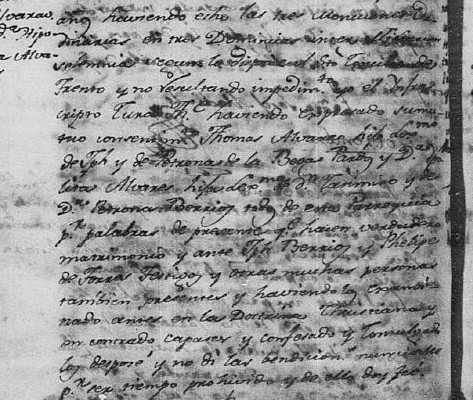 Alvarao,
dⁿ Hipo
Alva-
año haviendo echo las tres Moniciones or
dinarias en tres Dominicas
solemnia segun lo dispone el Sto Concilio de
Trento y no resultando impedimto yo el Infra
cripto Cura Thᵉ haviendo expresado su mu
tuo consentimto Thomas Alvarez hijo
de Jph y de Petrona de la Vegas Pardo y Dª
lita Alvares hija lexma de Dⁿ y de
Dª Petrona Berrios todos de esta Parroquia
pr palabras de presente qe hacen verdadero
matrimonio y ante Jph Berrios y Phelipe
de Torres testigos y otras muchas personas
tambien presentes y haviendolos exami
nado antes en la Doctrina Christiana y
encontrado capases y confesado y Comulgado
los despose y no di las bendicions nunciales
pr ser tiempo prohivido y de ello doy feé